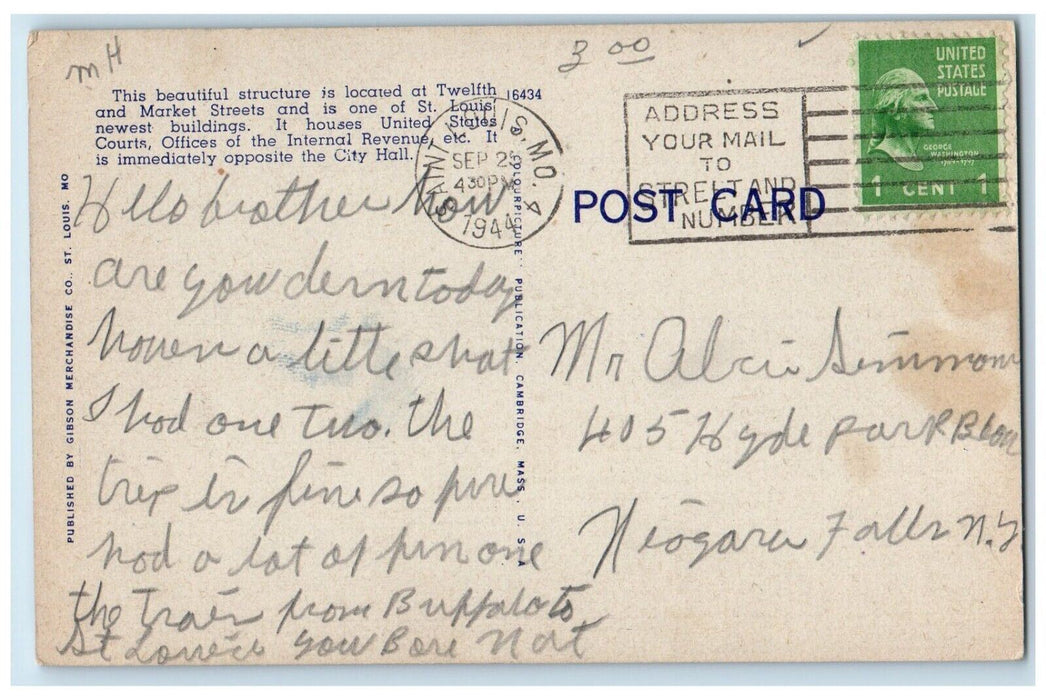 mH
3 00
This beautiful structure is located at Twelfth
and Market Streets and is one of St. Louis'
newest buildings. It houses United States
Courts, Offices of the Internal Revenue, etc. It
is immediately opposite the City Hall.
16434
SAINT LOUIS, MO. 4
SEP 2
4 30 PM
1944
ADDRESS
YOUR MAIL
TO
STREET AND
NUMBER
UNITED
STATES
POSTAGE
GEORGE
WASHINGTON
1789-1797
1 CENT 1
POST CARD
PUBLISHED BY GIBSON MERCHANDISE CO., ST. LOUIS, MO
"COLOURPICTURE" PUBLICATION, CAMBRIDGE, MASS., U. S. A
Hello brother how
are you today
a little shot
I had one two. the
trip is fine so
had a lot of fun one
the train from Buffalo to
St Louis you Bore Nat
Mr Simmons
405 Hyde park
Niagara Falls N.Y